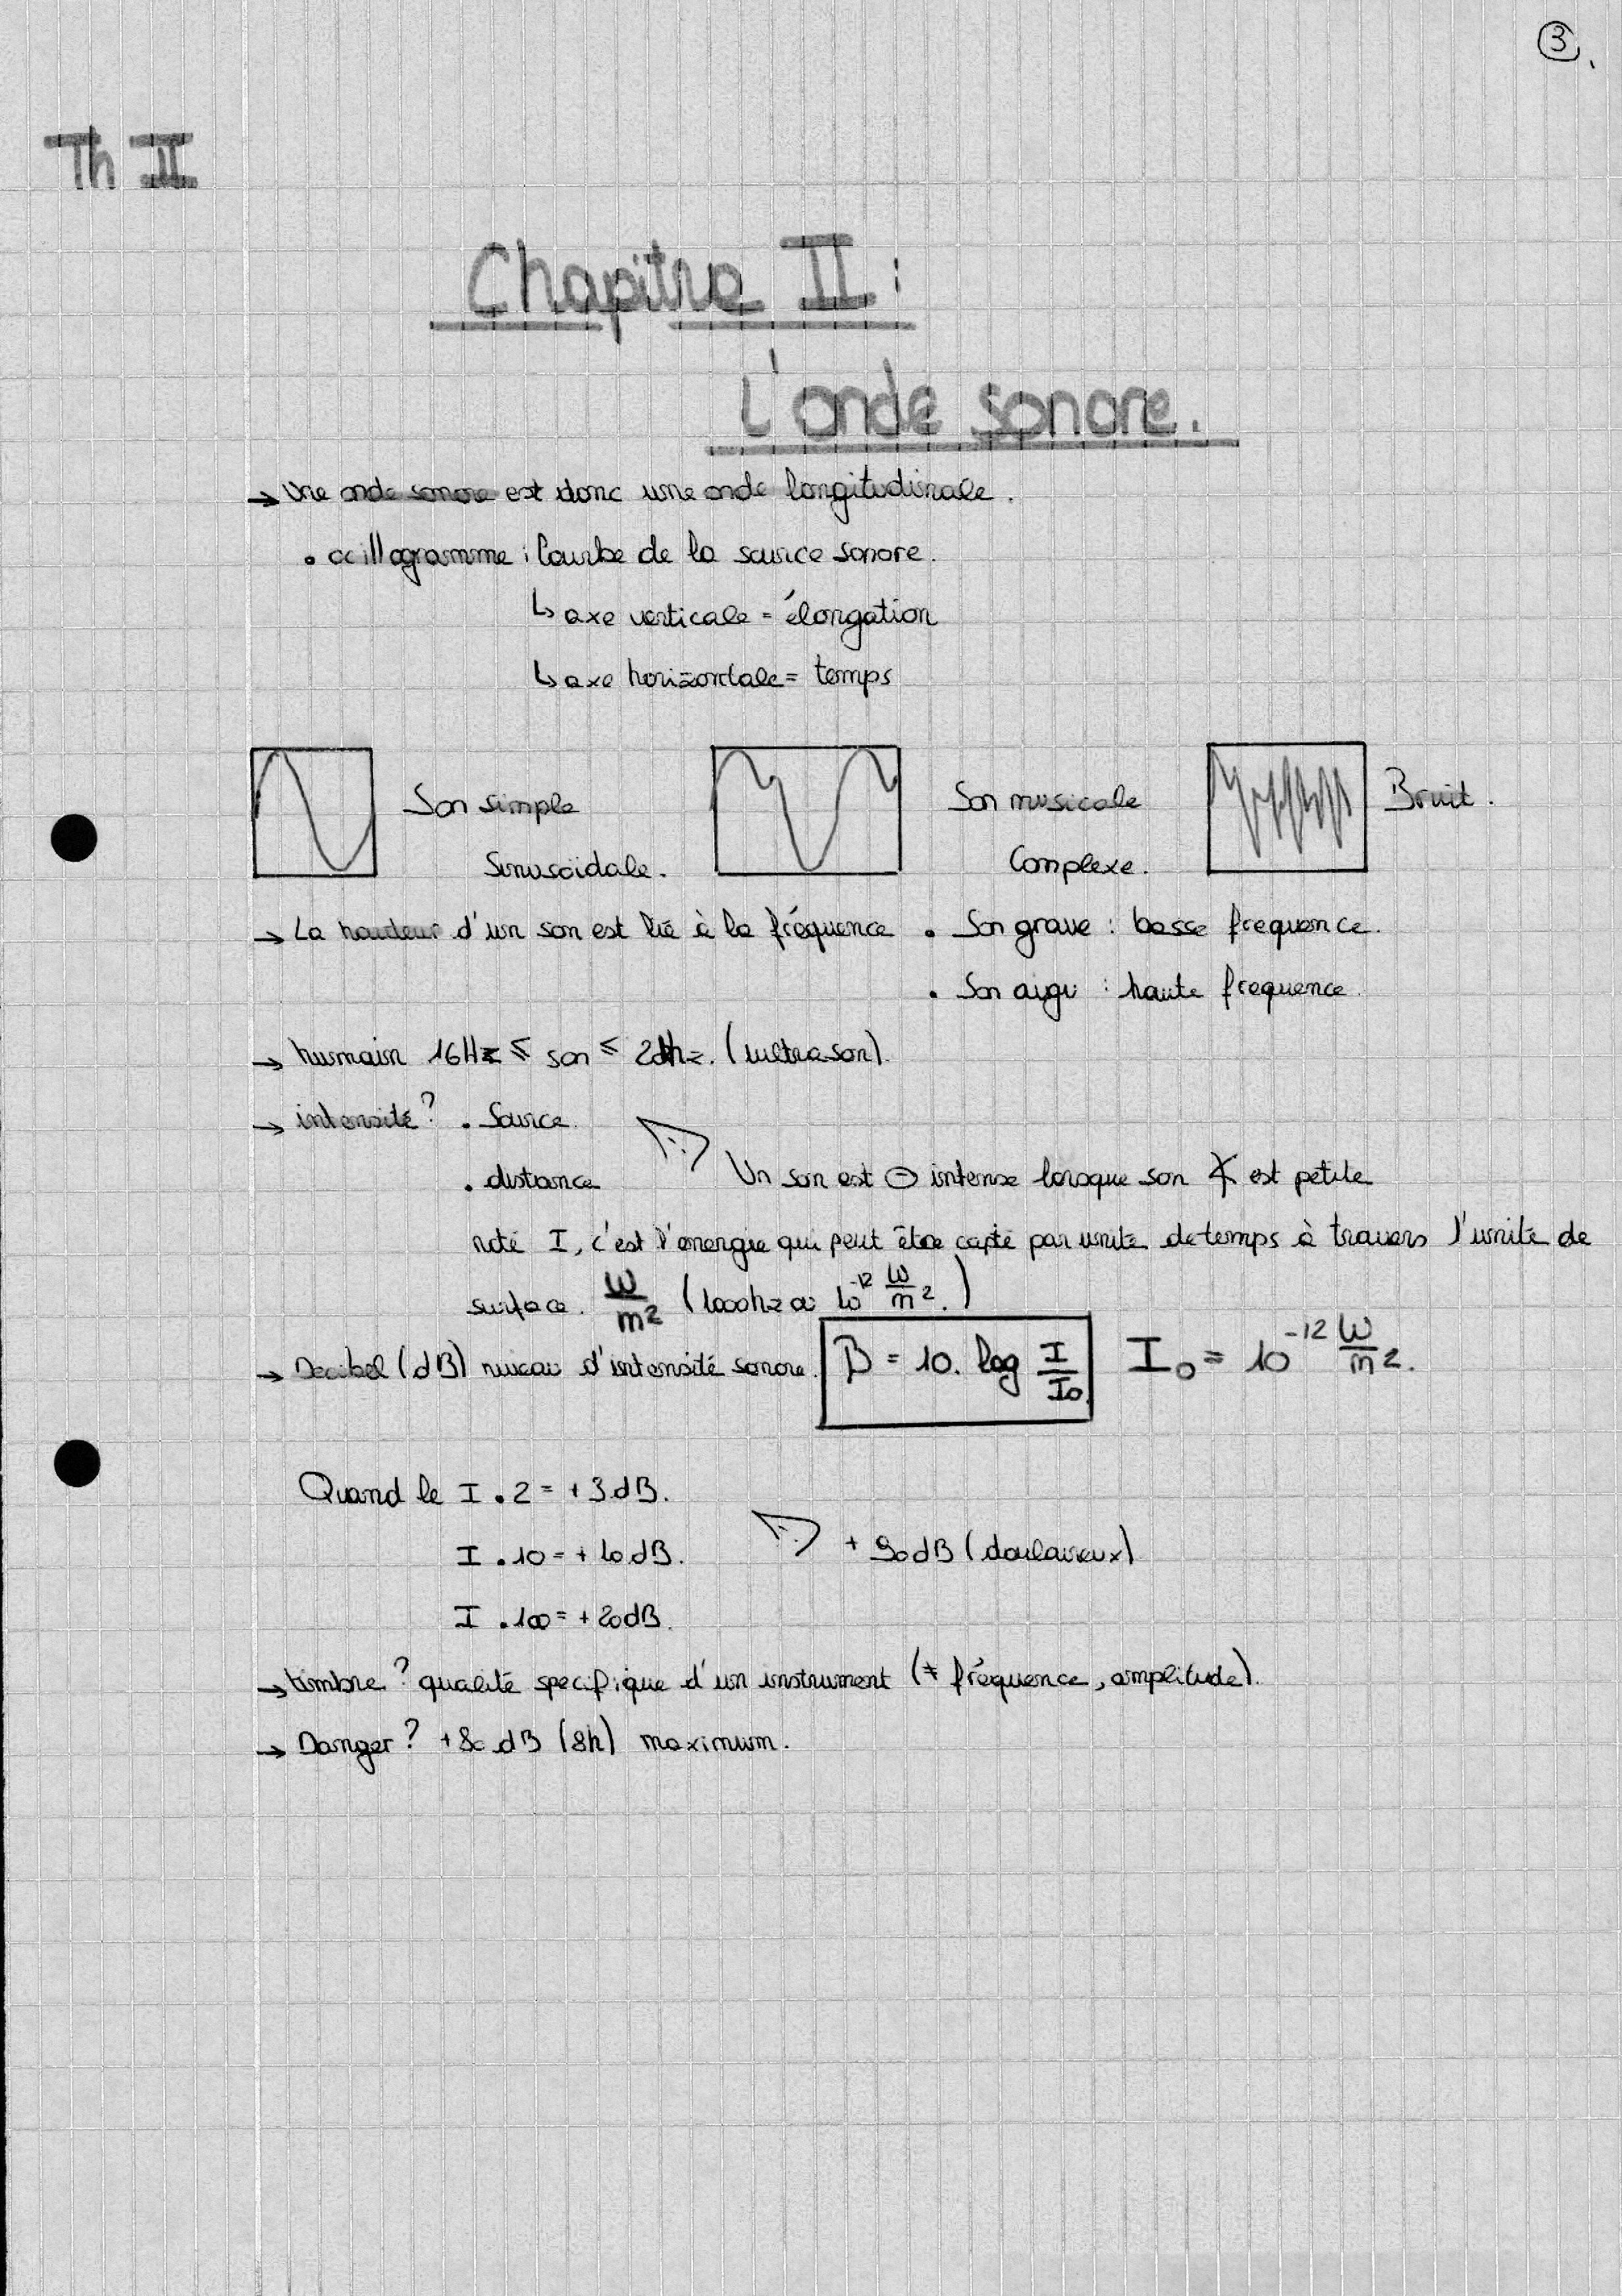 3
Th II
Chapitre II :
L'onde sonore.
→ Une onde sonore est donc une onde longitudinale.
• oscillogramme : Courbe de la source sonore.
↳ axe verticale = élongation
↳ axe horizontale = temps
Son simple Son musicale Bruit.
Sinusoïdale. Complexe.
→ La hauteur d'un son est lié à la fréquence • Son grave : basse frequence.
• Son aigu : haute frequence.
→ humain 16Hz ≤ son ≤ (ultrason).
→ intensité ? • Source.
• distance Un son est ⊖ intense lorsque son est petite
noté I, c'est l'énergie qui peut être capté par unite de temps à travers l'unite de
surface. W/m² (1000hz 10⁻¹² W/m².)
→ Decibel (dB) niveau d'intensité sonore. β = 10. log I/I₀. I₀ = 10⁻¹² W/m².
Quand le I . 2 = +3dB.
I . 10 = + 10dB. + 90dB (douloureux)
I . 100 = + 20dB.
→ timbre ? qualité specifique d'un instrument (≠ fréquence, amplitude).
→ Danger ? +80 dB (8h) maximum.